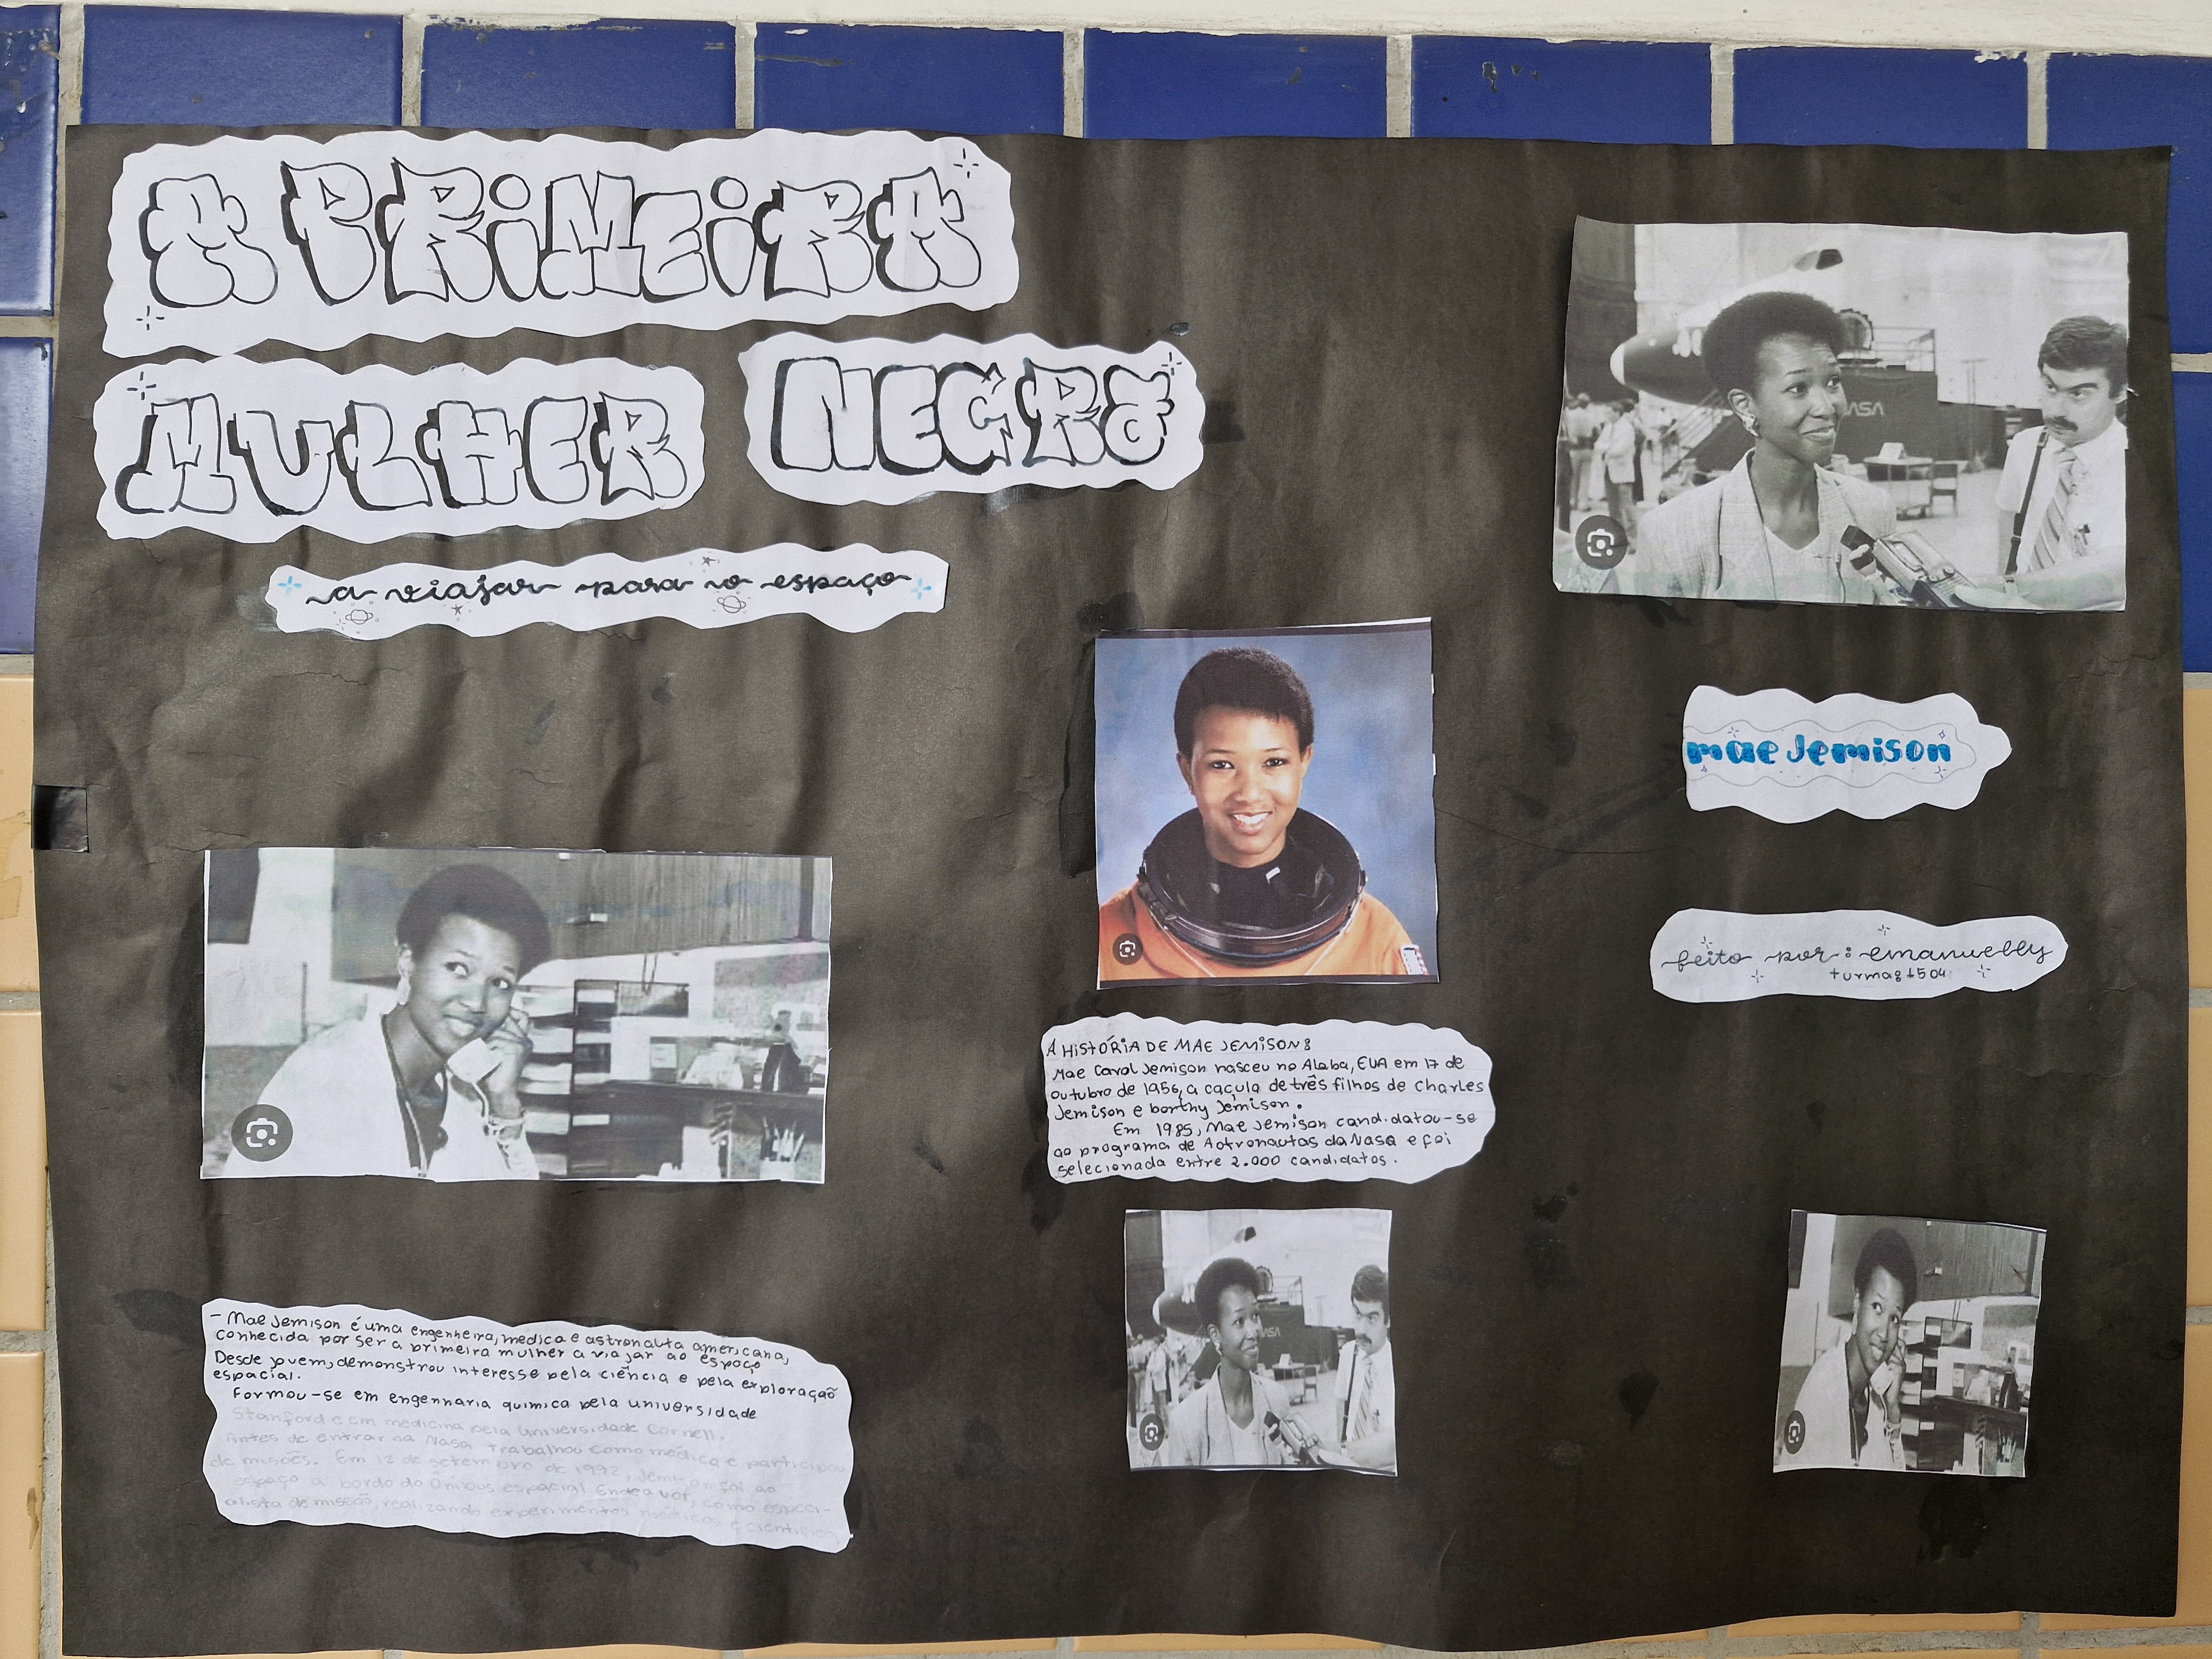 A PRiMEiRA
MULHER NEGRA
a viajar para o espaço
NASA
mae Jemison
feito por: emanuelly
turma: 1504
A HISTÓRIA DE MAE JEMISON:
Mae Carol Jemison nasceu no Alaba, EUA em 17 de
outubro de 1956, a caçula de três filhos de Charles
Jemison e borthy Jemison.
Em 1985, Mae Jemison candidatou-se
ao programa de Aotronautas da Nasa e foi
selecionada entre 2.000 candidatos.
NASA
- Mae Jemison é uma engenheira, medica e astronauta americana,
conhecida por ser a primeira mulher a viajar ao espaço
Desde jovem, demonstrou interesse pela ciência e pela exploração
espacial.
Formou-se em engenharia quimica pela universidade
Stanford e em medicina pela Universidade Cornell.
Antes de entrar na Nasa trabalhou como médica e participou
de misões. Em 12 de setembro de 1992, Jemison foi ao
espaço a bordo do Ônibus espacial Endeavor, como especi-
alista de missão, realizando experimentos médicos e científicos